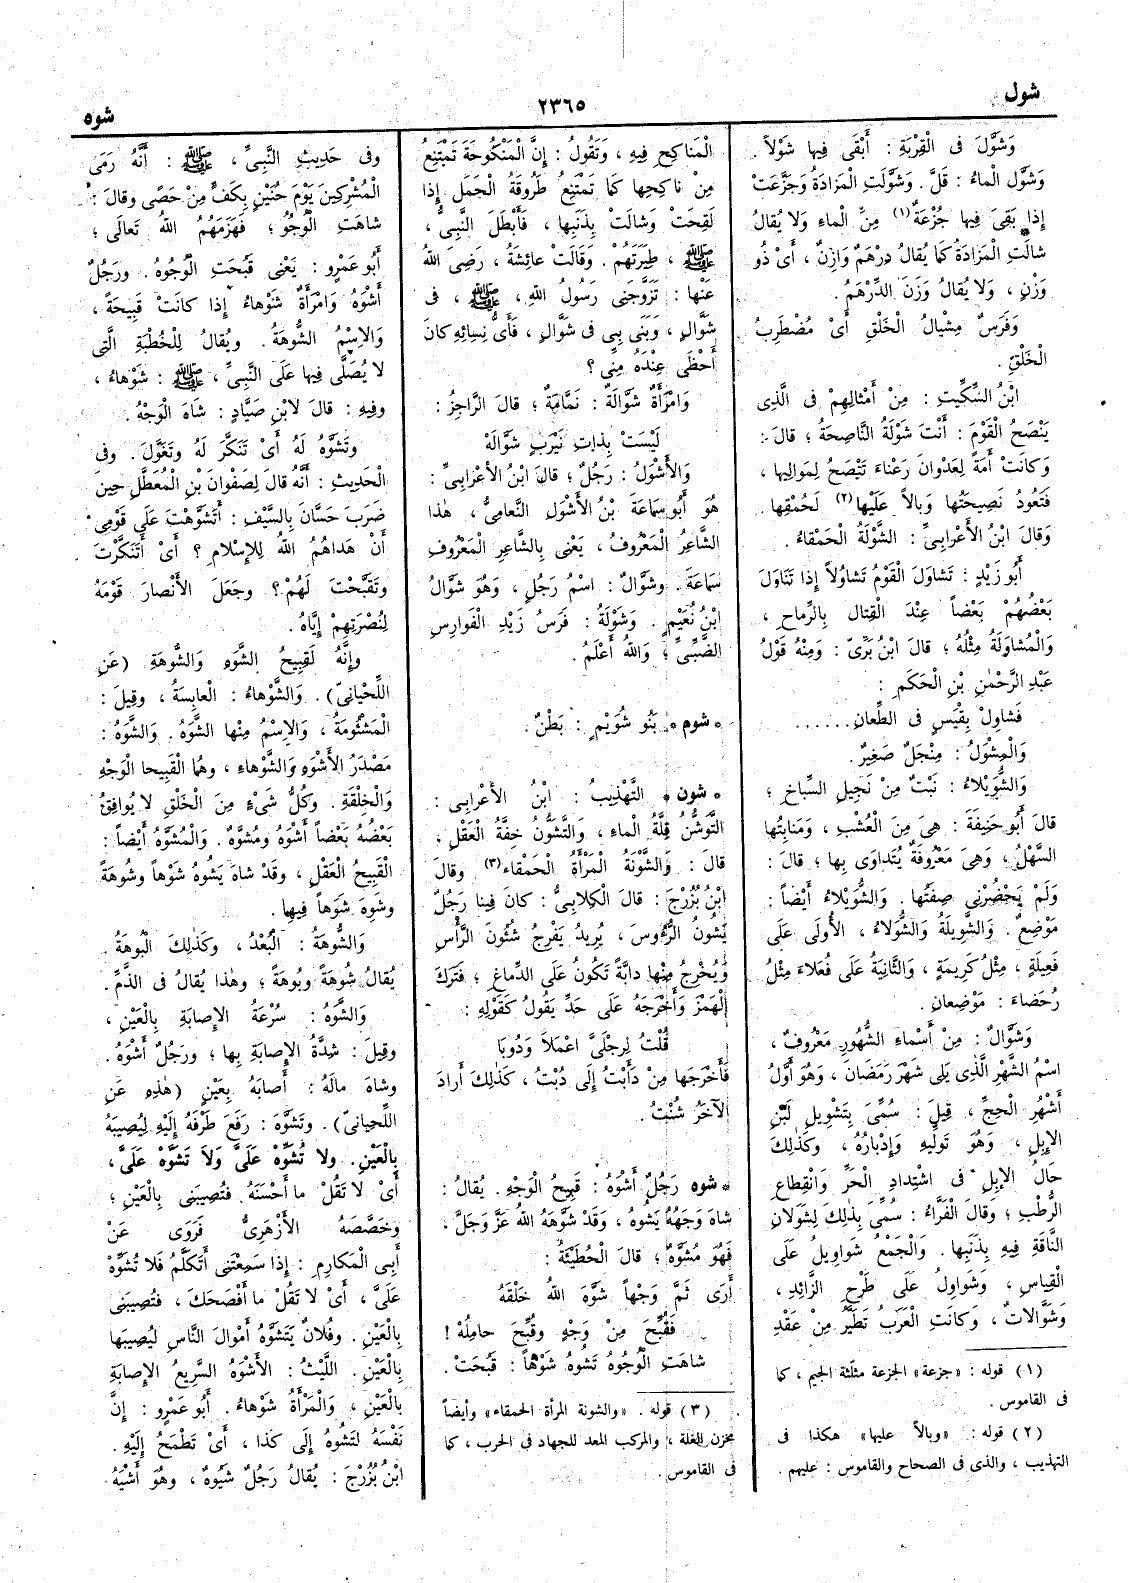 شول
٢٣٦٥
شوه
وَشَوَّلَ فى الْقِرْبَةِ : أَبْقَى فِيها شَوْلاً .
وَشَوَّل الْماءُ : قَلَّ . وَشَوَّلَتِ الْمَزادَةُ وَجَزَّعَتْ
إِذا بَقِىَ فِيها جُزْعَةٌ (١) مِنَ الْماءِ وَلا يُقالُ
شالَتِ الْمَزادَةُ كَما يُقالُ دِرْهَمٌ وازِنٌ ، أَىْ ذُو
وَزْنٍ ، وَلا يُقالُ وَزَنَ الدِّرْهَمُ .
وَفَرَسٌ مِشْيالُ الْخَلْقِ أَىْ مُضْطَرِبُ
الْخَلْقِ .
ابْنُ السِّكِّيتِ : مِنْ أَمْثالِهِمْ فى الَّذِى
يَنْصَحُ الْقَوْمَ : أَنْتَ شَوْلَةُ النَّاصِحَةُ ؛ قالَ :
وَكانَتْ أَمَةً لِعَدْوانَ رَعْناءَ تَنْصَحُ لِمَوالِيها ،
فَتَعُودُ نَصِيحَتُها وَبالاً عَلَيْها (٢) لَحُمْقِها .
وَقالَ ابْنُ الأَعْرابِىِّ : الشَّوْلَةُ الْحَمْقاءُ .
أَبُو زَيْدٍ : تَشاوَلَ الْقَوْمُ تَشاوُلاً إِذا تَناوَلَ
بَعْضُهُمْ بَعْضاً عِنْدَ الْقِتالِ بِالرِّماحِ ،
وَالْمُشاوَلَةُ مِثْلُهُ ؛ قالَ ابْنُ بَرِّىّ : وَمِنْهُ قَوْلُ
عَبْدِ الرَّحْمٰنِ بْنِ الْحَكَمِ :
فَشاوِلْ بِقَيْسٍ فى الطِّعانِ ......
وَالْمِشْوَلُ : مِنْجَلٌ صَغِيرٌ .
وَالشُّوَيْلاءُ : نَبْتٌ مِنْ نَجِيلِ السِّباخِ ؛
قالَ أَبُو حَنِيفَةَ : هِىَ مِنَ الْعُشْبِ ، وَمَنابِتُها
السَّهْلُ ، وَهِىَ مَعْرُوفَةٌ يُتَداوَى بِها ؛ قالَ :
وَلَمْ يَحْضُرْنِى صِفَتُها . وَالشُّوَيْلاءُ أَيْضاً :
مَوْضِعٌ . وَالشَّوِيلَةُ وَالشُّوَلاءُ ، الأُولَى عَلَى
فَعِيلَةٍ ، مِثْلُ كَرِيمَةٍ ، وَالثَّانِيَةُ عَلَى فُعَلاءَ مِثْلُ
رُحَضاءَ : مَوْضِعانِ .
وَشَوَّالٌ : مِنْ أَسْماءِ الشُّهُورِ مَعْرُوفٌ ،
اسْمُ الشَّهْرِ الَّذِى يَلِى شَهْرَ رَمَضانَ ، وَهُوَ أَوَّلُ
أَشْهُرِ الْحَجِّ ، قِيلَ : سُمِّىَ بِتَشْوِيلِ لَبَنِ
الإِبِلِ ، وَهُوَ تَوَلِّيهِ وَإِدْبارُهُ ، وَكَذٰلِكَ
حالُ الإِبِلِ فى اشْتِدادِ الْحَرِّ وَانْقِطاعِ
الرُّطْبِ ؛ وَقالَ الْفَرَّاءُ : سُمِّىَ بِذٰلِكَ لِشَوَلانِ
النَّاقَةِ فِيهِ بِذَنَبِها . وَالْجَمْعُ شَواوِيلُ عَلَى
الْقِياسِ ، وَشَواوِلُ عَلَى طَرْحِ الزَّائِدِ ،
وَشَوَّالاتٌ ، وَكانَتِ الْعَرَبُ تَطَيَّرُ مِنْ عَقْدِ
(١) قوله : «جزعة» الجزعة مثلثة الجيم ، كما
فى القاموس .
(٢) قوله : «وبالاً عليها» هكذا فى
التهذيب ، والذى فى الصحاح والقاموس : عليهم .
الْمَناكِحِ فِيهِ ، وَتَقُولُ : إِنَّ الْمَنْكُوحَةَ تَمْتَنِعُ
مِنْ ناكِحِها كَما تَمْتَنِعُ طَرُوقَةُ الْجَمَلِ إِذا
لَقِحَتْ وَشالَتْ بِذَنَبِها ، فَأَبْطَلَ النَّبِىُّ ،
ﷺ ، طِيَرَتَهُمْ . وَقالَتْ عائِشَةُ ، رَضِىَ اللهُ
عَنْها : تَزَوَّجَنِى رَسُولُ اللهِ ، ﷺ ، فى
شَوَّالٍ ، وَبَنَى بِى فى شَوَّالٍ ، فَأَىُّ نِسائِهِ كانَ
أَحْظَى عِنْدَهُ مِنِّى ؟
وَامْرَأَةٌ شَوَّالَةٌ : نَمَّامَةٌ ؛ قالَ الرَّاجِزُ :
لَيْسَتْ بِذاتِ نَيْرَبٍ شَوَّالَهْ
وَالأَشْوَلُ : رَجُلٌ ؛ قالَ ابْنُ الأَعْرابِىِّ :
هُوَ أَبُو سَماعَةَ بْنُ الأَشْوَلِ النَّعامِىُّ ، هٰذا
الشَّاعِرُ الْمَعْرُوفُ ، يَعْنِى بِالشَّاعِرِ الْمَعْرُوفِ
سَماعَةَ . وَشَوَّالٌ : اسْمُ رَجُلٍ ، وَهُوَ شَوَّالُ
ابْنُ نُعَيْمٍ . وَشَوْلَةُ : فَرَسُ زَيْدِ الْفَوارِسِ
الضَّبِّىِّ ؛ وَاللهُ أَعْلَمُ .
* شوم * بَنُو شُوَيْمٍ : بَطْنٌ .
* شون * التَّهْذِيبُ : ابْنُ الأَعْرابِى :
التَّوَشُّنُ قِلَّةُ الْماءِ ، وَالتَّشَوُّنُ خِفَّةُ الْعَقْلِ ،
قالَ : وَالشَّوْنَةُ الْمَرْأَةُ الْحَمْقاءُ (٣) وَقالَ
ابْنُ بُزُرْجَ : قالَ الْكِلابِىُّ : كانَ فِينا رَجُلٌ
يَشُونُ الرُّءُوسَ ، يُرِيدُ يَفْرِجُ شُئُونَ الرَّأْسِ
وَيُخْرِجُ مِنْها دابَّةً تَكُونُ عَلَى الدِّماغِ ؛ فَتَرَكَ
الْهَمْزَ وَأَخْرَجَهُ عَلَى حَدِّ يَقُولُ كَقَوْلِهِ :
قُلْتُ لِرِجْلَىَّ اعْمَلاَ وَدُوبَا
فَأَخْرَجَها مِنْ دَأَبْتُ إِلَى دُبْتُ ، كَذٰلِكَ أَرادَ
الآخَرُ شُنْتُ .
* شوه * رَجُلٌ أَشْوَهُ : قَبِيحُ الْوَجْهِ . يُقالُ :
شاهَ وَجْهُهُ يَشُوهُ ، وَقَدْ شَوَّهَهُ اللهُ عَزَّ وَجَلَّ ،
فَهُوَ مُشَوَّهٌ ؛ قالَ الْحُطَيْئَةُ :
أَرَى ثَمَّ وَجْهاً شَوَّهَ اللهُ خَلْقَهُ
فَقُبِّحَ مِنْ وَجْهٍ وَقُبِّحَ حامِلُهْ !
شاهَتِ الْوُجُوهُ تَشُوهُ شَوْهاً : قَبُحَتْ .
(٣) قوله . «والشونة المرأة الحمقاء» وأيضاً
مخزن الغلة ، والمركب المعد للجهاد فى الحرب ، كما
فى القاموس .
وفى حَدِيثِ النَّبِىِّ ، ﷺ : أَنَّهُ رَمَى
الْمُشْرِكِينَ يَوْمَ حُنَيْنٍ بِكَفٍّ مِنْ حَصًى وَقالَ :
شاهَتِ الْوُجُوُ ؛ فَهَزَمَهُمُ اللهُ تَعالَى ؛
أَبُو عَمْرٍو : يَعْنِى قَبُحَتِ الْوُجُوهُ . وَرَجُلٌ
أَشْوَهُ وَامْرَأَةٌ شَوْهاءُ إِذا كانَتْ قَبِيحَةً ،
وَالاِسْمُ الشُّوهَةُ . وَيُقالُ لِلْخُطْبَةِ الَّتِى
لا يُصَلَّى فِيها عَلَى النَّبِىِّ ، ﷺ : شَوْهاءُ ،
وَفِيهِ : قالَ لابْنِ صَيَّادٍ : شاهَ الْوَجْهُ .
وَتَشَوَّهَ لَهُ أَىْ تَنَكَّرَ لَهُ وَتَغَوَّلَ . وَفى
الْحَدِيثِ : أَنَّهُ قالَ لِصَفْوانَ بْنِ الْمُعَطَّلِ حِينَ
ضَرَبَ حَسَّانَ بِالسَّيْفِ : أَتَشَوَّهْتَ عَلَى قَوْمِى
أَنْ هَداهُمُ اللهُ لِلإِسْلامِ ؟ أَىْ أَتَنَكَّرْتَ
وَتَقَبَّحْتَ لَهُمْ ؟ وَجَعَلَ الأَنْصارَ قَوْمَهُ
لِنُصْرَتِهِمْ إِيَّاهُ .
وَإِنَّهُ لَقَبِيحُ الشَّوَهِ وَالشُّوهَةِ (عَنِ
اللِّحْيانِىّ) . وَالشَّوْهاءُ : الْعابِسَةُ ، وَقِيلَ :
الْمَشْئُومَةُ ، وَالاِسْمُ مِنْها الشَّوَهُ . وَالشَّوَهُ :
مَصْدَرُ الأَشْوَهِ وَالشَّوْهاءِ ، وَهُما الْقَبِيحا الْوَجْهِ
وَالْخِلْقَةِ . وَكُلُّ شَىْءٍ مِنَ الْخَلْقِ لا يُوافِقُ
بَعْضُهُ بَعْضاً أَشْوَهُ وَمُشَوَّهٌ . وَالْمُشَوَّهُ أَيْضاً :
الْقَبِيحُ الْعَقْلِ ، وَقَدْ شاهَ يَشُوهُ شَوْهاً وَشُوهَةً
وَشَوِهَ شَوَهاً فِيها .
وَالشُّوهَةُ : الْبُعْدُ ، وَكَذٰلِكَ الْبُوهَةُ .
يُقالُ شُوهَةً وَبُوهَةً ؛ وَهٰذا يُقالُ فى الذَّمِّ .
وَالشَّوَهُ : سُرْعَةُ الإِصابَةِ بِالْعَيْنِ ،
وَقِيلَ : شِدَّةُ الإِصابَةِ بِها ؛ وَرَجُلٌ أَشْوَهُ .
وَشاهَ مالَهُ : أَصابَهُ بِعَيْنٍ (هٰذِهِ عَنِ
اللِّحْيانِىّ) . وَتَشَوَّهَ : رَفَعَ طَرْفَهُ إِلَيْهِ لِيُصِيبَهُ
بِالْعَيْنِ . وَلا تُشَوِّهْ عَلَىَّ وَلاَ تَشَوَّهْ عَلَىَّ ،
أَىْ لا تَقُلْ ما أَحْسَنَهُ . فَتُصِيبَنِى بِالْعَيْنِ ؛
وَخَصَّصَهُ الأَزْهَرِىُّ فَرَوَى عَنْ
أَبِى الْمَكارِمِ : إِذا سَمِعْتَنِى أَتَكَلَّمُ فَلا تُشَوِّهْ
عَلَىَّ ، أَىْ لا تَقُلْ ما أَفْصَحَكَ ، فَتُصِيبَنِى
بِالْعَيْنِ . وَفُلانٌ يَتَشَوَّهُ أَمْوالَ النَّاسِ لِيُصِيبَها
بِالْعَيْنِ . اللَّيْثُ : الأَشْوَهُ السَّرِيعُ الإِصابَةِ
بِالْعَيْنِ ، وَالْمَرْأَةُ شَوْهاءُ . أَبُو عَمْرٍو : إِنَّ
نَفْسَهُ لَتَشُوهُ إِلَى كَذا ، أَىْ تَطْمَحُ إِلَيْهِ .
ابْنُ بُزُرْجَ : يُقالُ رَجُلٌ شَيُوهٌ ، وَهُوَ أَشْيَهُ